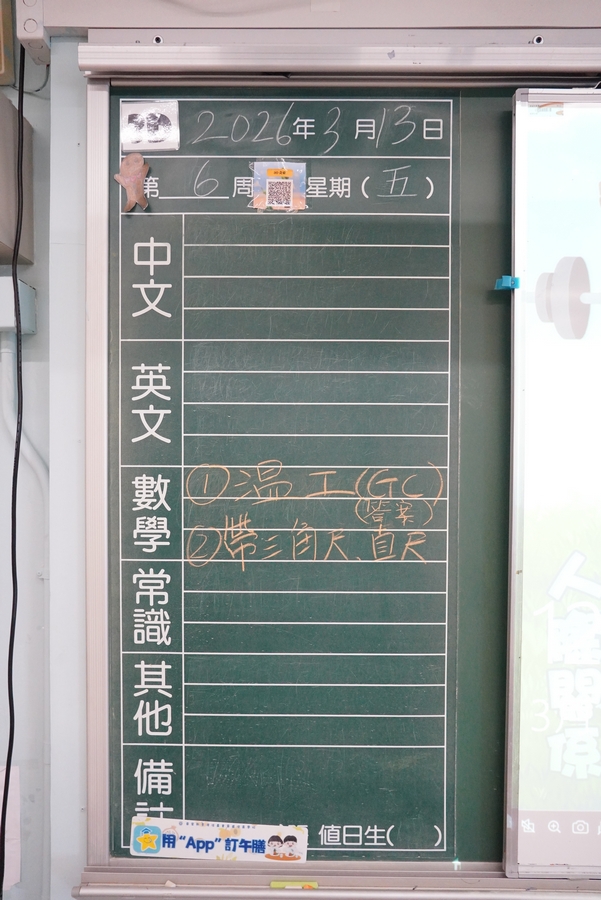 2026年3月13日
第 6 周 星期(五)
中文
英文
數學
①溫工(GC)
(答案)
②帶三角尺、直尺
常識
其他
備註
用“App”訂午膳
值日生( )
人際關係